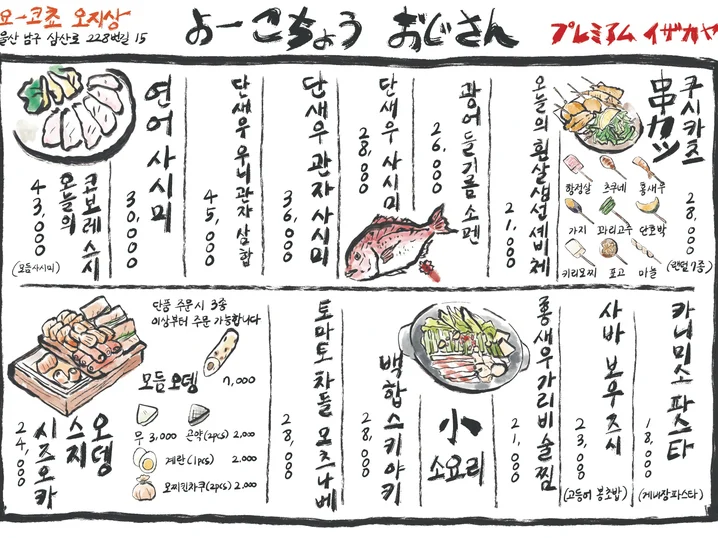 요-코쵸 오지상
울산 남구 삼산로 228번길 15
よーこちょう おじさん
プレミアム イザカヤ
쿠시카츠
串カツ
28,000
(랜덤 7종)
항정살
츠쿠네
홍새우
가지
꽈리고추
단호박
키리모찌
표고
마늘
오늘의 흰살생선 세비체
21,000
광어 들기름 소멘
26,000
단새우 사시미
28,000
단새우 관자 사시미
36,000
단새우 우니 관자 삼합
45,000
연어 사시미
30,000
오늘의
코보레스시
43,000
(모듬사시미)
카니미소 파스타
18,000
(게내장파스타)
사바 보우즈시
23,000
(고등어 봉초밥)
홍새우 가리비 술찜
21,000
小
소요리
백합 스키야키
28,000
토마토 차돌 모츠나베
28,000
단품 주문시 3종
이상부터 주문 가능합니다
모듬오뎅 7,000
무 3,000
곤약(2pcs) 2,000
계란(1pcs) 2,000
모찌킨챠쿠(2pcs) 2,000
시즈오카
스지
오뎅
24,000